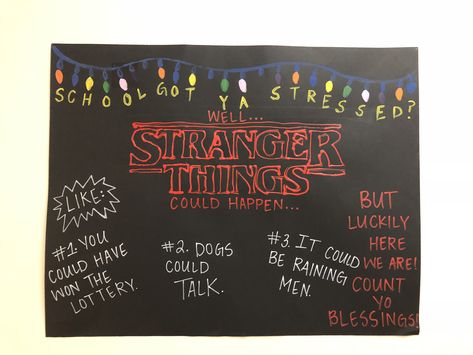 SCHOOL GOT YA STRESSED?
WELL...
STRANGER
THINGS
COULD HAPPEN...
LIKE:
#1. YOU
COULD HAVE
WON THE
LOTTERY.
#2. DOGS
COULD
TALK.
#3. IT COULD
BE RAINING
MEN.
BUT
LUCKILY
HERE
WE ARE!
COUNT
YO
BLESSINGS!